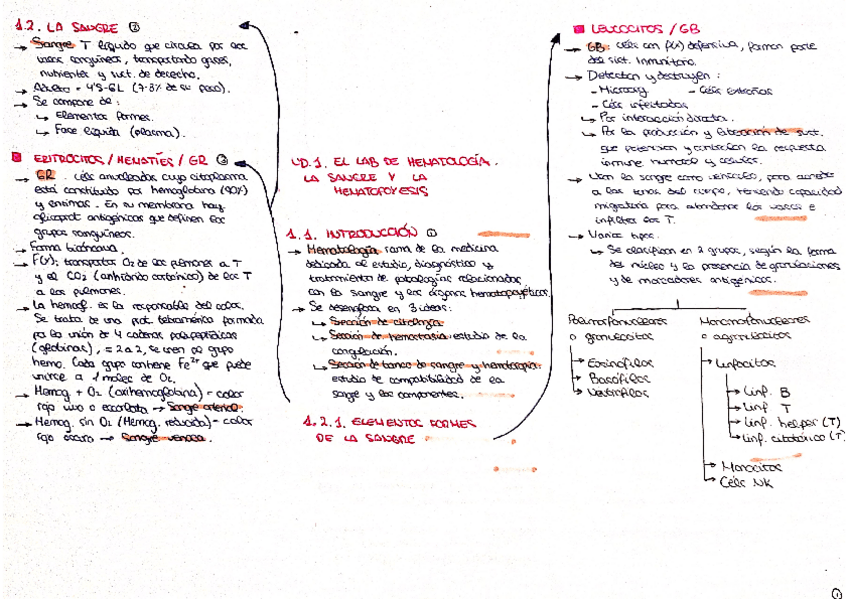 1.2. LA SANGRE ②
→ Sangre T líquido que circula por los
vasos sanguíneos, transportando gases,
nutrientes y sust. de desecho.
→ Adulto - 4'5-6L (7-8% de su peso).
→ Se compone de:
↳ Elementos formes.
↳ Fase líquida (plasma).
ERITROCITOS / HEMATÍES / GR ③
→ GR. céls anucleadas cuyo citoplasma
está constituido por hemoglobina (90%)
y enzimas. En su membrana hay
glicoprot antigénicas que definen los
grupos sanguíneos.
→ Forma bicóncava.
→ F(x): transportar O₂ de los pulmones a T
y el CO₂ (anhídrido carbónico) de los T
a los pulmones.
→ La hemog. es la responsable del color.
Se trata de una prot. tetramérica formada
por la unión de 4 cadenas polipeptídicas
(globinas), = 2 a 2, se unen al grupo
hemo. Cada grupo contiene Fe²⁺ que puede
unirse a 1 molec de O₂.
→ Hemog + O₂ (oxihemoglobina) - color
rojo vivo o escarlata → Sangre arterial.
→ Hemog. sin O₂ (Hemog. reducida) - color
rojo oscuro → Sangre venosa.
UD.1. EL LAB DE HEMATOLOGÍA.
LA SANGRE Y LA
HEMATOPOYESIS
1.1. INTRODUCCIÓN ①
→ Hematología: rama de la medicina
dedicada al estudio, diagnóstico y
tratamiento de patologías relacionadas
con la sangre y los órganos hematopoyéticos.
→ Se desenglosa en 3 ideas:
↳ Sección de citología.
↳ Sección de hemostasia: estudio de la
coagulación.
↳ Sección de banco de sangre y hemoterapia:
estudio de compatibilidad de la
sangre y los componentes.
1.2.1. ELEMENTOS FORMES
DE LA SANGRE
LEUCOCITOS / GB
→ GB: céls con f(x) defensiva, forman parte
del sist. Inmunitario.
→ Detectan y destruyen:
- Microorg - Céls extrañas
- Céls infectadas
↳ Por interacción directa.
↳ Por la producción y liberación de sust.
que potencian y controlan la respuesta
inmune humoral y celular.
→ Usan la sangre como vehículo, para acceder
a las zonas del cuerpo, teniendo capacidad
migratoria para abandonar los vasos e
infiltrar los T.
→ Varios tipos.
↳ Se clasifican en 2 grupos, según la forma
del núcleo y la presencia de granulaciones
y de marcadores antigénicos.
Polimorfonucleares
o granulocitos
→ Eosinófilos
→ Basófilos
→ Neutrófilos
Mononorfonucleares
o agranulocitos
→ Linfocitos
→ Linf. B
→ Linf T
→ Linf. helper (T)
→ Linf. citotóxico (T)
→ Monocitos
→ Céls NK
①